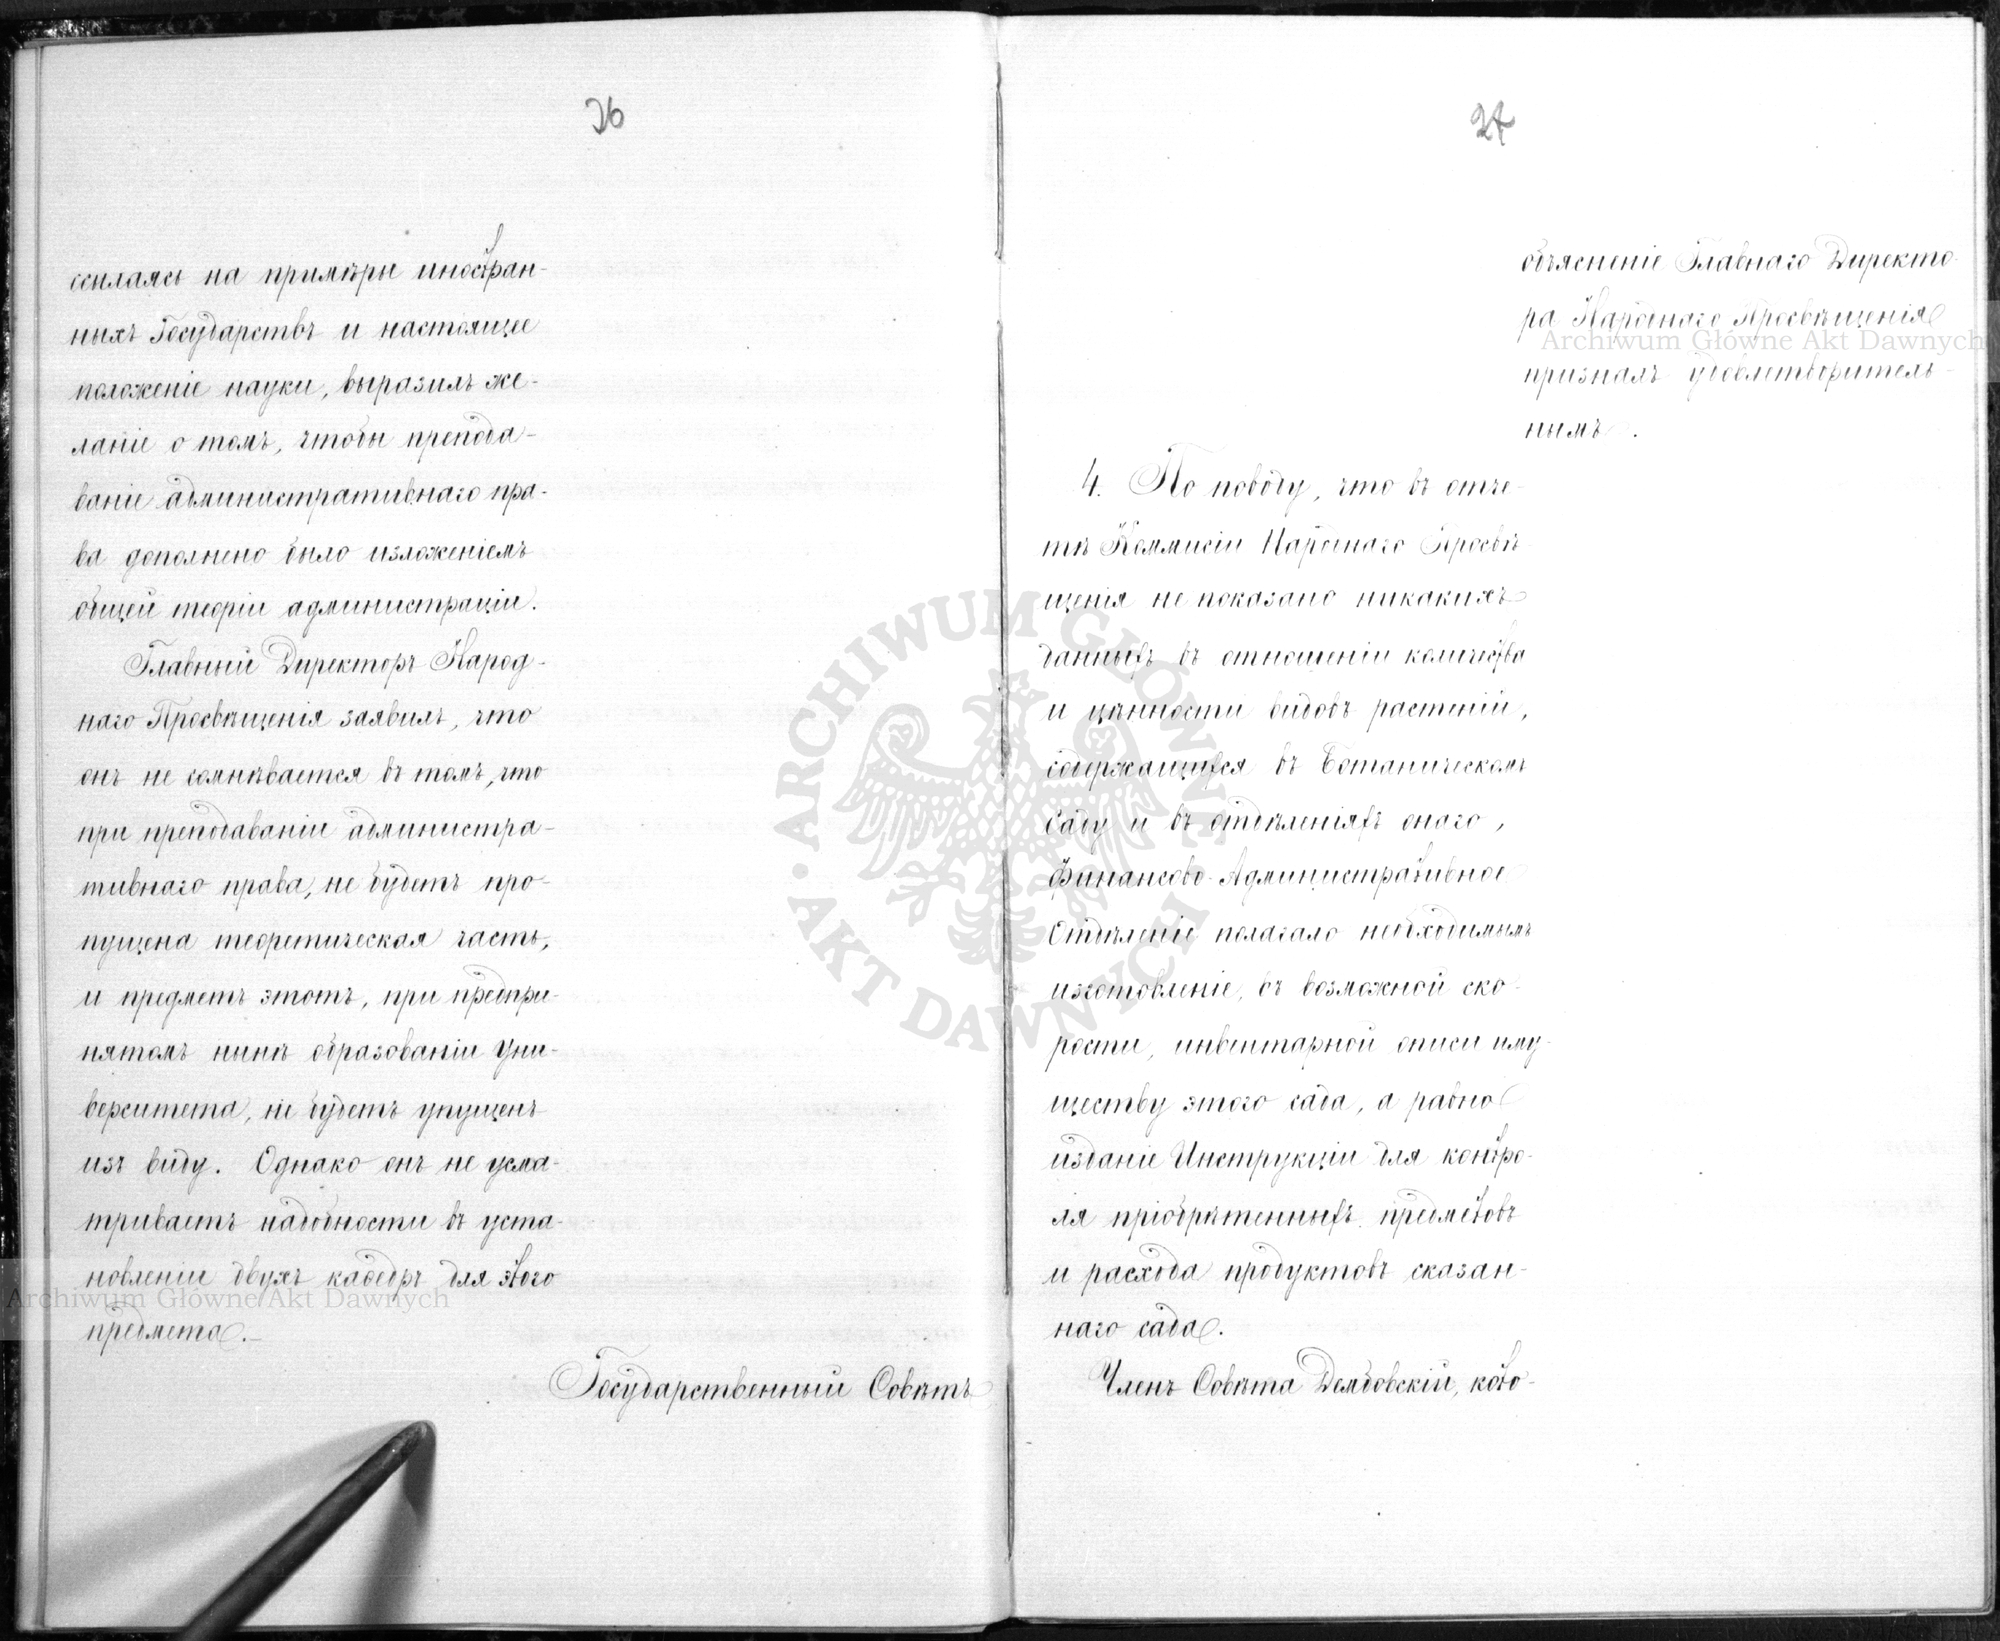 26
ссылаясь на примѣры иностран-
ныхъ Государствъ и настоящее
положеніе науки, выразилъ же-
ланіе о томъ, чтобы препода-
ваніе административнаго пра-
ва дополнено было изложеніемъ
общей теоріи администраціи.
Главный Директоръ Народ-
наго Просвѣщенія заявилъ, что
онъ не сомнѣвается въ томъ, что
при преподаваніи администра-
тивнаго права, не будетъ про-
пущена теоретическая часть,
и предметъ этотъ, при предпри-
нятомъ нынѣ образованіи Уни-
верситета, не будетъ упущенъ
изъ виду. Однако онъ не усма-
триваетъ надобности въ уста-
новленіи двухъ каѳедръ для этого
предмета.—
Государственный Совѣтъ
27
объясненіе Главнаго Директо-
ра Народнаго Просвѣщенія
призналъ удовлетворитель-
нымъ.
4. По поводу, что въ отче-
тѣ Коммисіи Народнаго Просвѣ-
щенія не показано никакихъ
данныхъ въ отношеніи количества
и цѣнности видовъ растеній,
содержащихся въ Ботаническомъ
Саду и въ отдѣленіяхъ онаго,
Финансово-Административное
Отдѣленіе полагало необходимымъ
изготовленіе, въ возможной ско-
рости, инвентарной описи иму-
ществу этого сада, а равно
изданіе Инструкціи для контро-
ля пріобрѣтенныхъ предметовъ
и расхода продуктовъ сказан-
наго сада.
Членъ Совѣта Дембовскій, кото-
Archiwum Główne Akt Dawnych
Archiwum Główne Akt Dawnych
ARCHIWUM GŁÓWNE • AKT DAWNYCH •